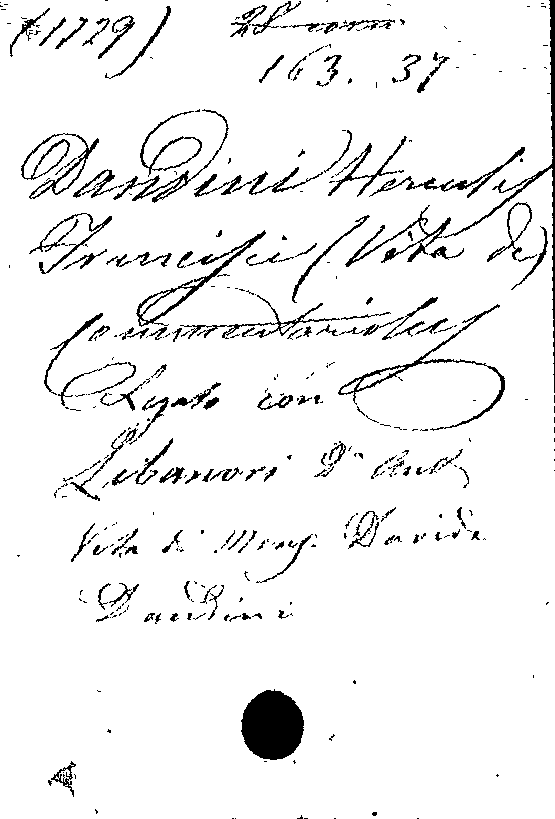 (1729)
163. 37
Dandini Herculis
Francisci (Vita de)
Commentariolus
Legato con
Libanori D. And.
Vita di Mons. Davide
Dandini